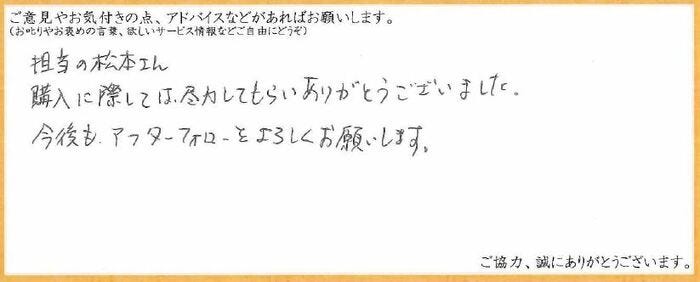 ご意見やお気付きの点、アドバイスなどがあればお願いします。
(お叱りやお褒めの言葉、欲しいサービス情報などご自由にどうぞ)
担当の松本さん
購入に際しては、尽力してもらいありがとうございました。
今後も、アフターフォローをよろしくお願いします。
ご協力、誠にありがとうございます。